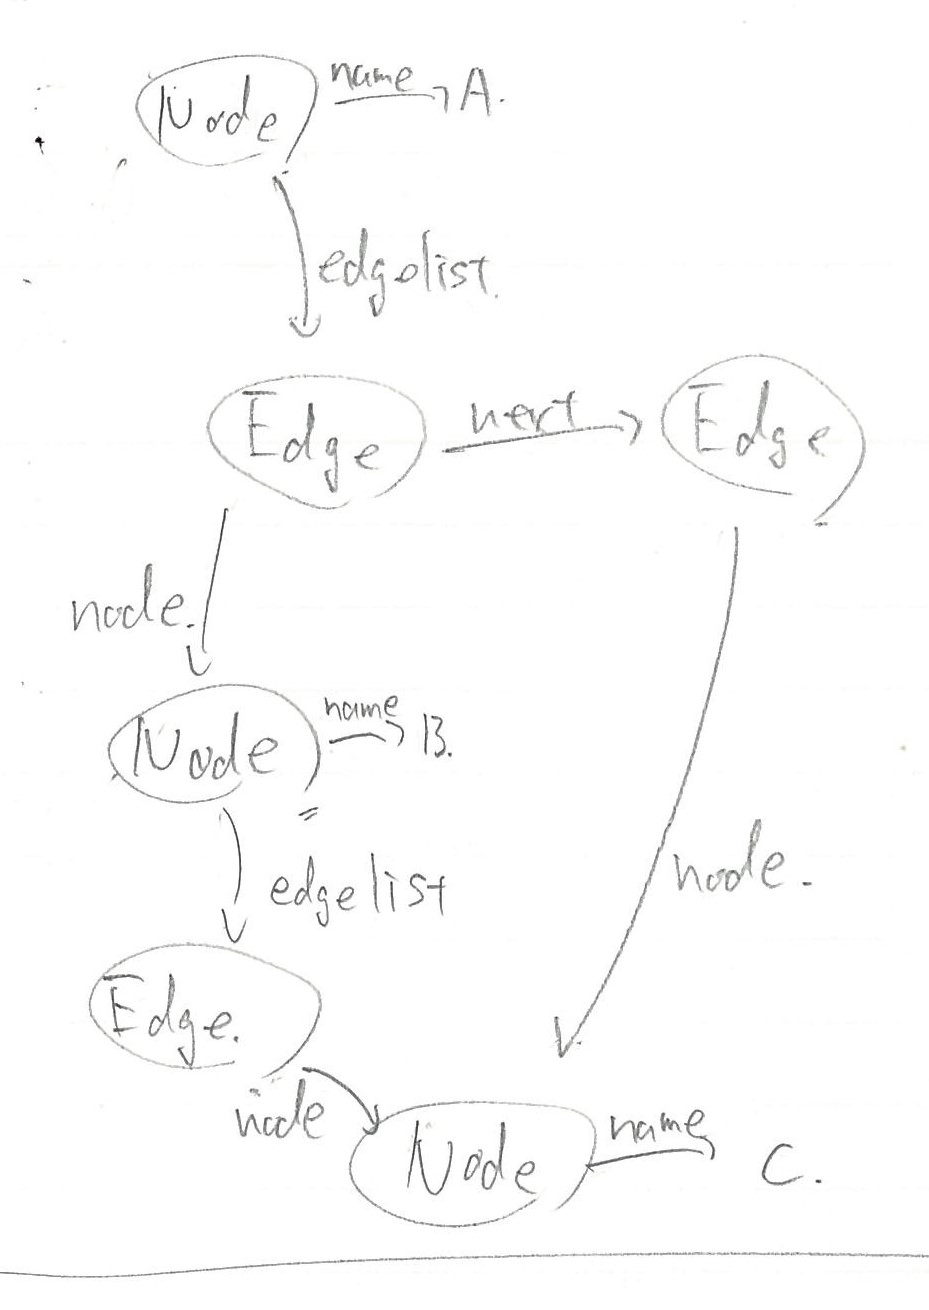 Node name A.
edgelist.
Edge next Edge
node.
Node name B.
node.
edgelist
Edge.
node
Node name C.